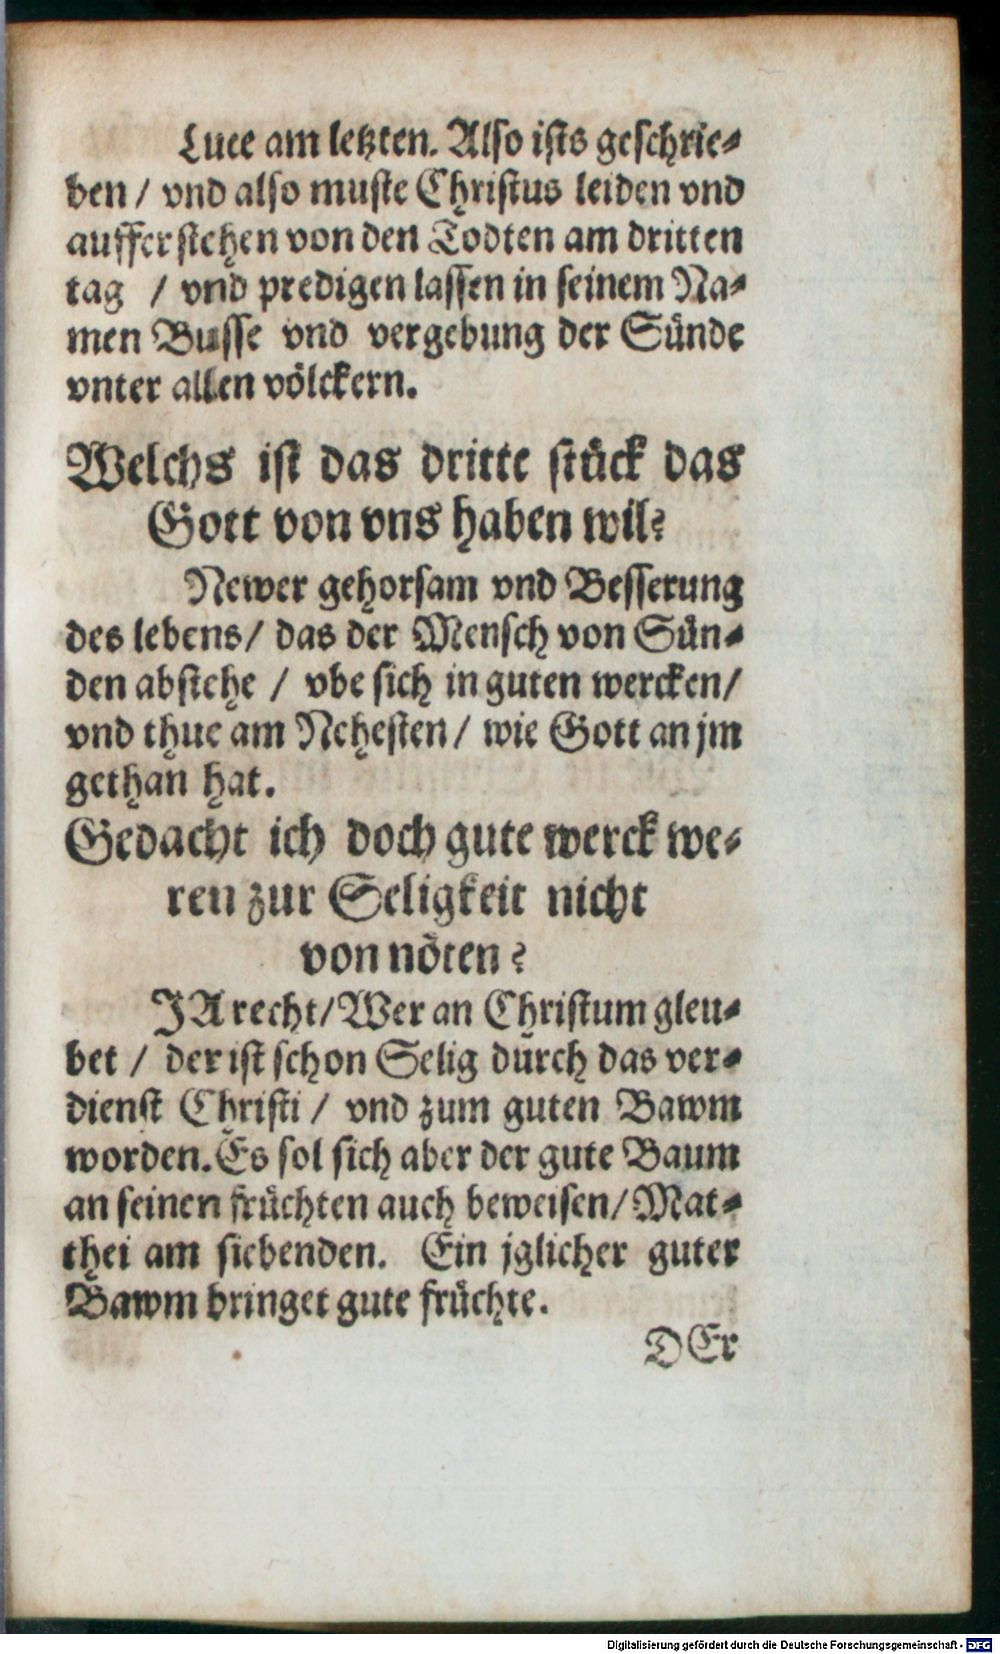 Luce am letzten. Also ists geschrie-
ben / vnd also muste Christus leiden vnd
aufferstehen von den Todten am dritten
tag / vnd predigen lassen in seinem Na-
men Busse vnd vergebung der Sünde
vnter allen völckern.
Welchs ist das dritte stück das
Gott von vns haben wil?
Newer gehorsam vnd Besserung
des lebens / das der Mensch von Sün-
den abstehe / vbe sich in guten wercken /
vnd thue am Nehesten / wie Gott an jm
gethan hat.
Gedacht ich doch gute werck we-
ren zur Seligkeit nicht
von nöten?
JA recht / Wer an Christum gleu-
bet / der ist schon Selig durch das ver-
dienst Christi / vnd zum guten Bawm
worden. Es sol sich aber der gute Baum
an seinen früchten auch beweisen / Mat-
thei am siebenden. Ein jglicher guter
Bawm bringet gute früchte.
DEr
Digitalisierung gefördert durch die Deutsche Forschungsgemeinschaft - DFG